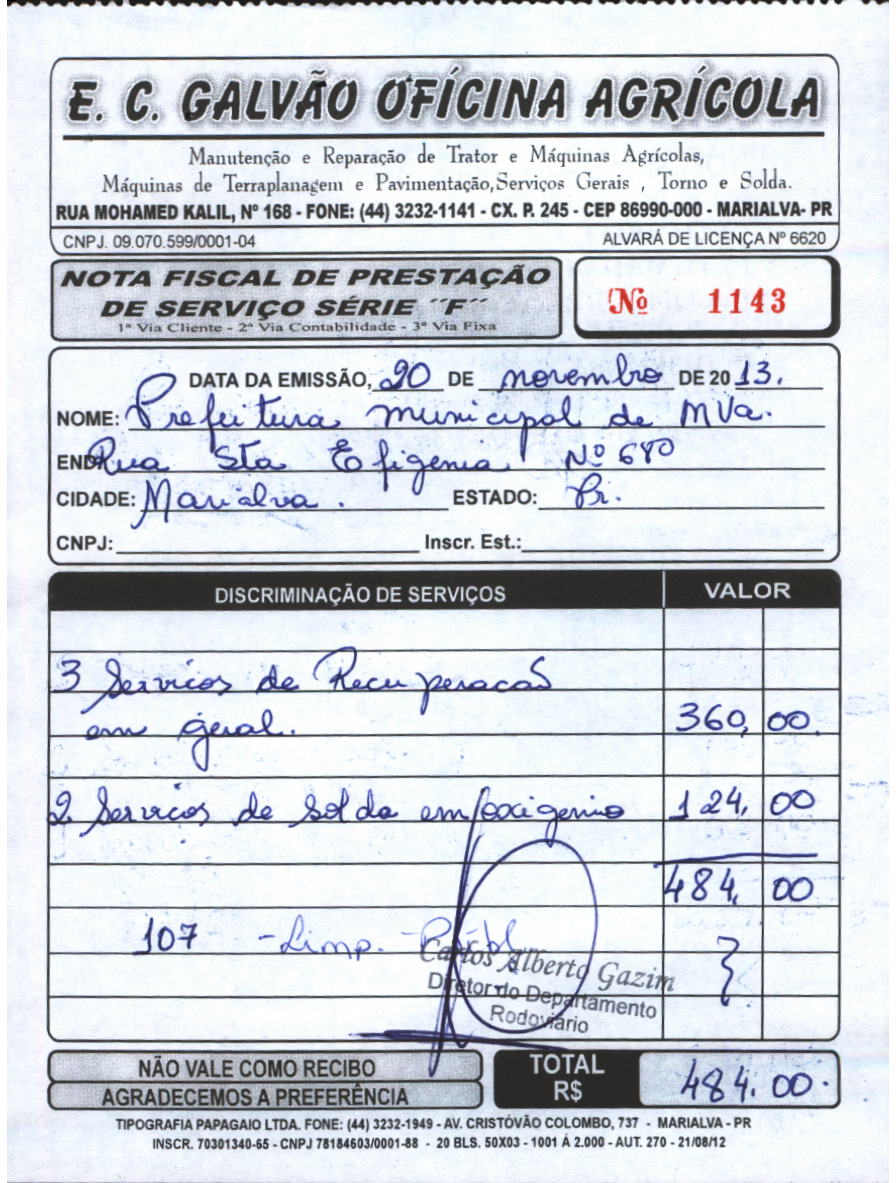 E. C. GALVÃO OFÍCINA AGRÍCOLA
Manutenção e Reparação de Trator e Máquinas Agrícolas,
Máquinas de Terraplanagem e Pavimentação,Serviços Gerais , Torno e Solda.
RUA MOHAMED KALIL, Nº 168 - FONE: (44) 3232-1141 - CX. P. 245 - CEP 86990-000 - MARIALVA- PR
CNPJ. 09.070.599/0001-04 ALVARÁ DE LICENÇA Nº 6620
NOTA FISCAL DE PRESTAÇÃO
DE SERVIÇO SÉRIE ´´F´´
1ª Via Cliente - 2ª Via Contabilidade - 3ª Via Fixa
Nº 1143
DATA DA EMISSÃO, 20 DE novembro DE 20 13.
NOME: Prefeitura municipal de MVa.
END: Rua Sta Efigenia Nº 680
CIDADE: Marialva. ESTADO: Pr.
CNPJ: Inscr. Est.:
DISCRIMINAÇÃO DE SERVIÇOS VALOR
3 Servicos de Recuperacas
em geral. 360,00
2 Servicos de Solda em oxigenio 124,00
484,00
107 - Limp. Públ
Carlos Alberto Gazim
Diretor do Departamento
Rodoviário
NÃO VALE COMO RECIBO
AGRADECEMOS A PREFERÊNCIA
TOTAL
R$ 484.00.
TIPOGRAFIA PAPAGAIO LTDA. FONE: (44) 3232-1949 - AV. CRISTÓVÃO COLOMBO, 737 - MARIALVA - PR
INSCR. 70301340-65 - CNPJ 78184603/0001-88 - 20 BLS. 50X03 - 1001 Á 2.000 - AUT. 270 - 21/08/12